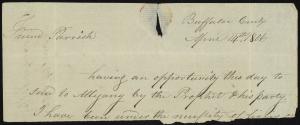 Buffalo Creek
June 4th 1816
Friend Parrish
having an opportunity this day to
send to Allegany by the Prophet & his party
I have been under the necessity of